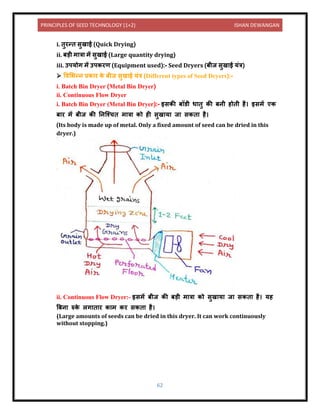 PRINCIPLES OF SEED TECHNOLOGY (1+2) ISHAN DEWANGAN
i. तुरन्त सुखाई (Quick Drying)
ii. बड़ी मात्रा में सुखाई (Large quantity drying)
iii. उपयोग में उपकरण (Equipment used):- Seed Dryers (बीज सुखाई यंत्र)
➤ विभिन्न प्रकार के बीज सुखाई यंत्र (Different types of Seed Dryers):-
i. Batch Bin Dryer (Metal Bin Dryer)
ii. Continuous Flow Dryer
i. Batch Bin Dryer (Metal Bin Dryer):- इसकी बॉडी धातु की बनी होती है। इसमें एक
बार में बीज की निश्चित मात्रा को ही सुखाया जा सकता है।
(Its body is made up of metal. Only a fixed amount of seed can be dried in this
dryer.)
Grain
Inlet
Air
Air
Wet grains
Drying zone
1-2 Feet
Grain
outlet
Dry
Grains
Cool
Dry
Air
Hot
Dry
Air
Perforated
Floor
Heater
Fan
ii. Continuous Flow Dryer:- इसमें बीज की बड़ी मात्रा को सुखाया जा सकता है। यह
बिना रुके लगातार काम कर सकता है।
(Large amounts of seeds can be dried in this dryer. It can work continuously
without stopping.)
62